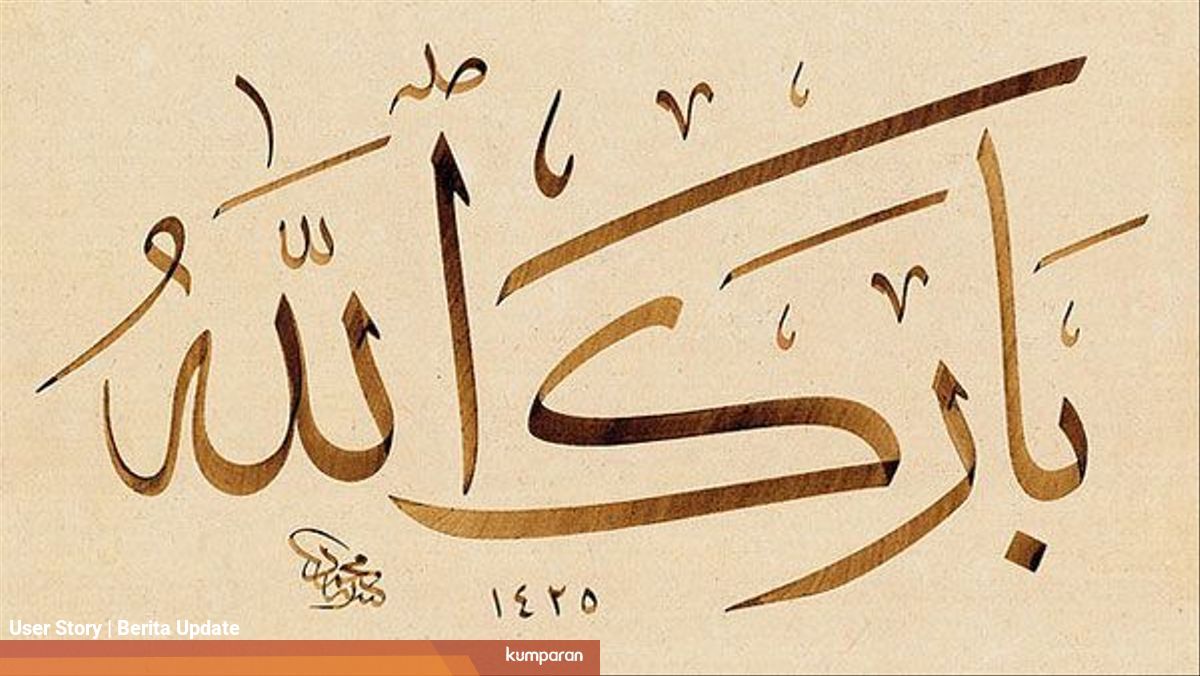 بَارَكَ ٱللّٰهُ
١٤٢٥
User Story | Berita Update
kumparan